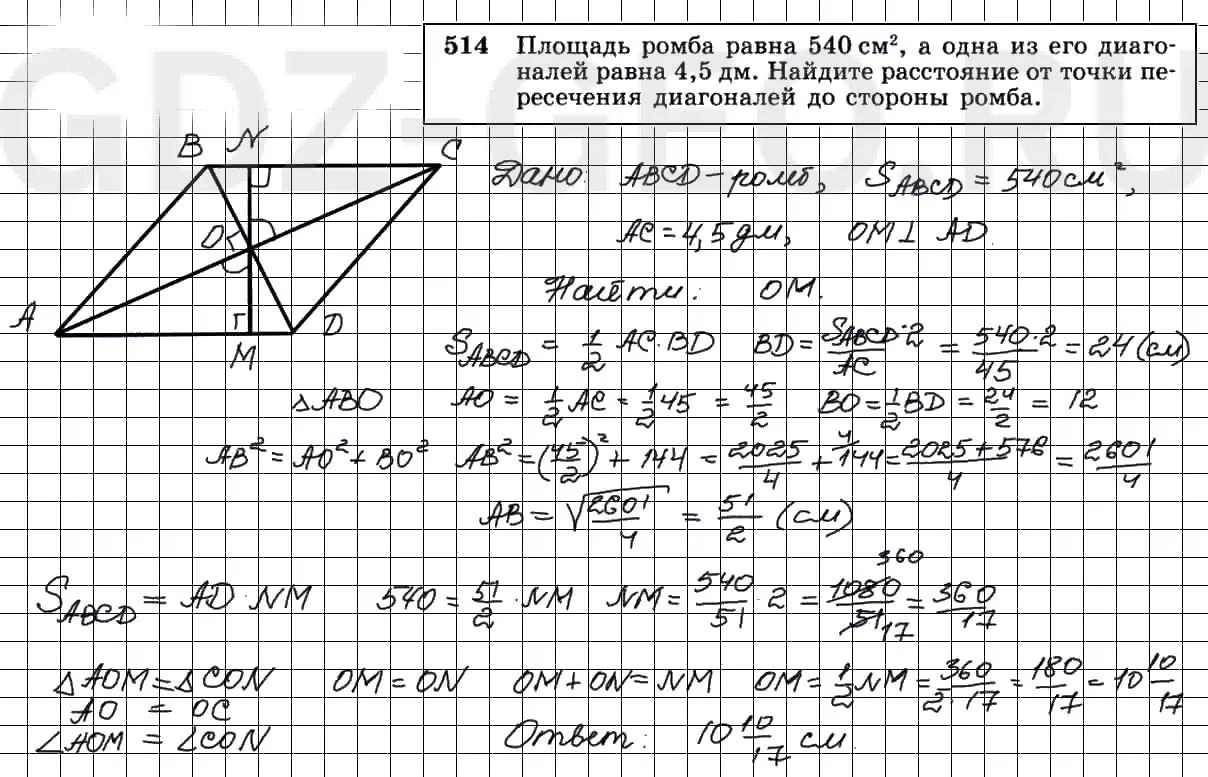 GDZ-GFO.RU
514 Площадь ромба равна 540 см², а одна из его диаго-
налей равна 4,5 дм. Найдите расстояние от точки пе-
ресечения диагоналей до стороны ромба.
B N C
O
A M D
Дано: ABCD – ромб, S_ABCD = 540 см²,
AC = 4,5 дм, OM ⊥ AD.
Найти: OM.
S_ABCD = 1/2 AC · BD BD = S_ABCD · 2 / AC = 540 · 2 / 45 = 24 (см)
△ABO AO = 1/2 AC = 1/2 45 = 45/2 BO = 1/2 BD = 24/2 = 12
AB² = AO² + BO² AB² = (45/2)² + 144 = 2025/4 + 144 4 = 2025 + 576 / 4 = 2601/4
AB = √2601/4 = 51/2 (см)
S_ABCD = AD · NM 540 = 51/2 · NM NM = 540/51 · 2 = 1080 360 / 51 17 = 360/17
△AOM = △CON OM = ON OM + ON = NM OM = 1/2 NM = 360 / 2 · 17 = 180/17 = 10 10/17
AO = OC
∠AOM = ∠CON Ответ: 10 10/17 см.